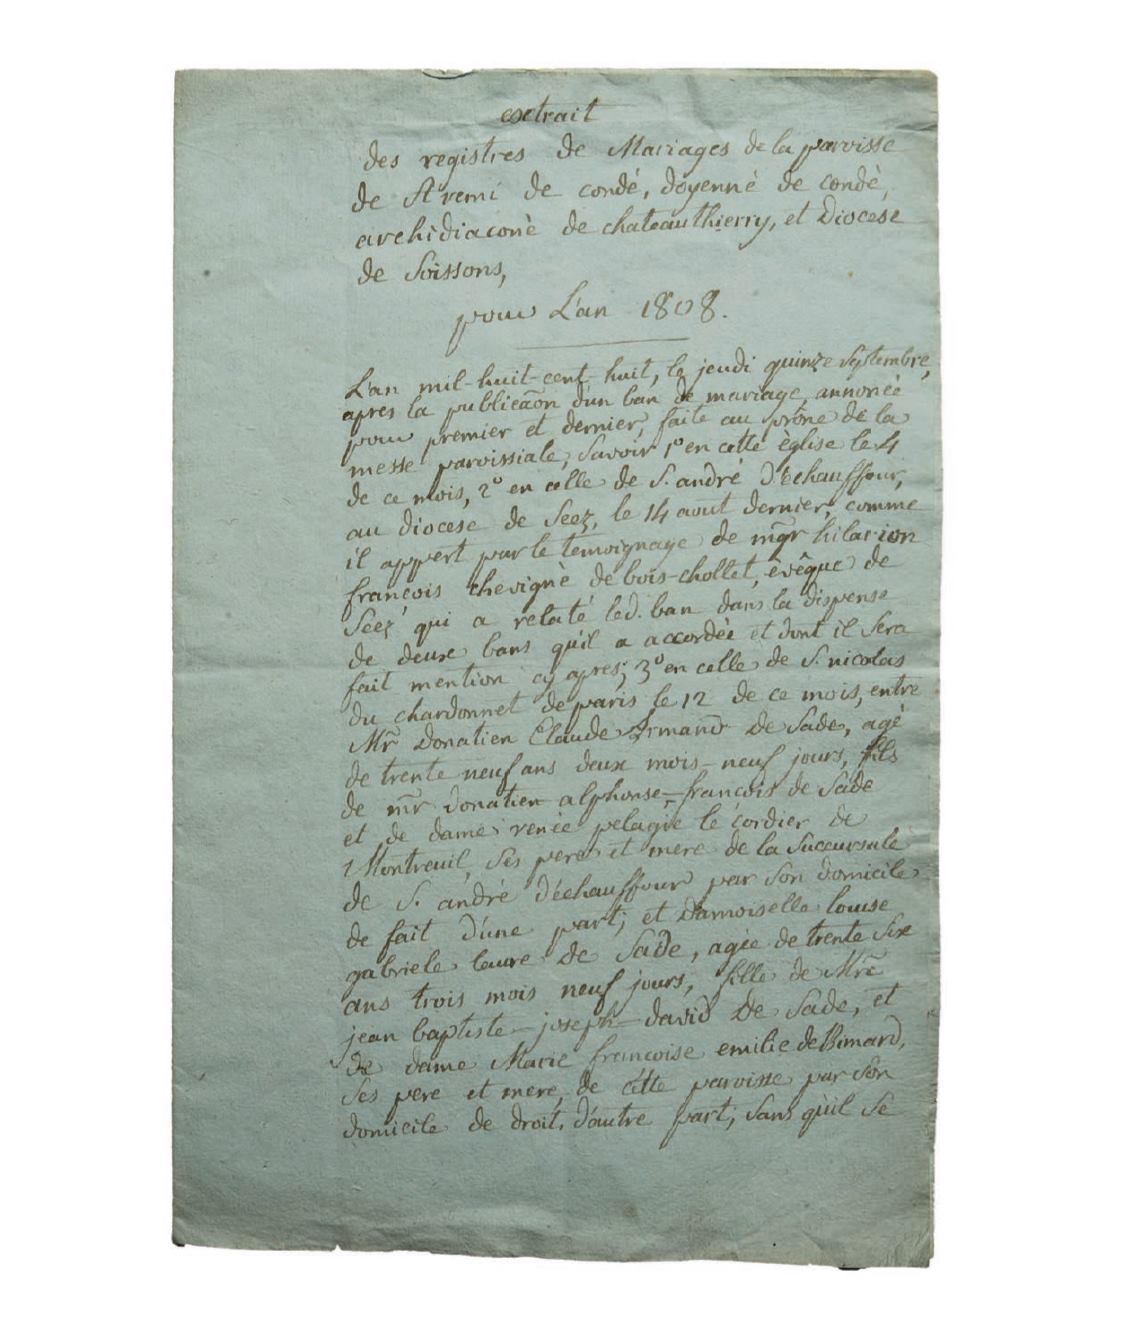 extrait
des registres de Mariages de la paroisse
de St remi de condé, doyenné de condé,
archidiaconè de chateauthierry, et Diocese
de Soissons,
pour L'an 1808.
L'an mil-huit-cent-huit, le jeudi quinze Septembre,
apres la publicãon d'un ban de mariage, annoncé
pour premier et dernier, faite au prône de la
messe paroissiale, Savoir 1º en cette église le 4
de ce mois, 2º en celle de S. andré d'Echauffour,
au diocese de Seez, le 14 aout dernier, comme
il appert par le temoignage de mgr hilarion
francois chevignè de bois-chollet, évêque de
Séez qui a relaté led. ban dans la dispense
de deux bans qu'il a accordée et dont il Sera
fait mention cy apres; 3º en celle de S. nicolas
du chardonnet de paris le 12 de ce mois, entre
Mr Donatien Claude Armand De Sade, agé
de trente neuf ans deux mois neuf jours, fils
de mr donatien alphonse-francois de Sade
et de dame renée pelagie le cordier de
Montreuil, Ses pere et mere de la Succursale
de S. andré d'échauffour par Son domicile
de fait d'une part; et Damoiselle louise
gabriele laure De Sade, agée de trente Six
ans trois mois neuf jours, fille de Mre
jean baptiste-joseph-david De Sade, et
de dame Marie francoise emilie de Bimard,
Ses pere et mere, de cette paroisse par Son
domicile de droit, d'autre part; Sans qu'il Se